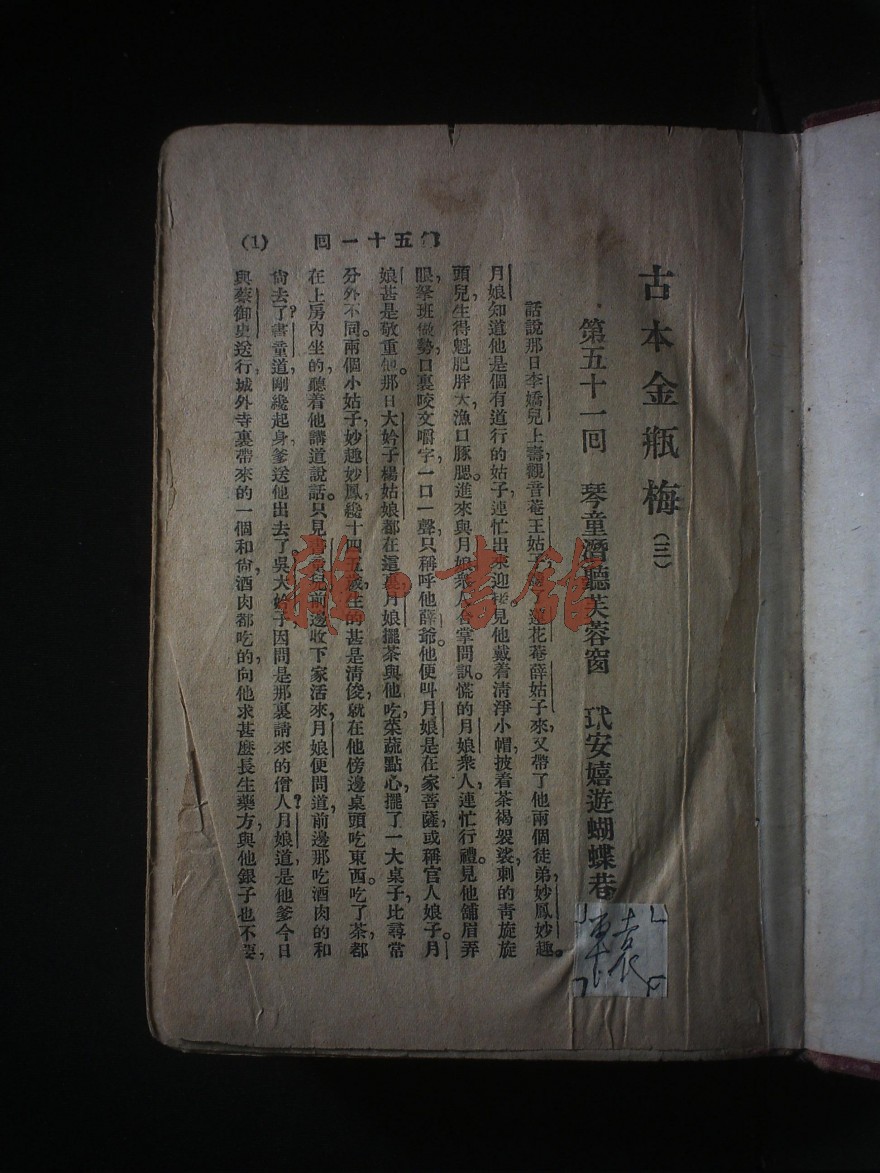 古本金瓶梅(三)
第五十一回 琴童潛聽芙蓉窗 玳安嬉遊蝴蝶巷
話說那日李嬌兒上壽，觀音菴王姑子，蓮花菴薛姑子來，又帶了他兩個徒弟妙鳳妙趣。
月娘知道他是個有道行的姑子，連忙出來迎接，見他戴着清淨小帽，披着茶褐袈裟，剃的青旋旋
頭兒，生得魁肥胖大，漁口豚腮。進來與月娘衆人合掌問訊。慌的月娘衆人，連忙行禮。見他舖眉弄
眼，拏班做勢，口裏咬文嚼字，一口一聲，只稱呼他薛爺。他便叫月娘是在家菩薩，或稱官人娘子。月
娘甚是敬重他。那日大妗子楊姑娘都在這裏，月娘擺茶與他吃，菜蔬點心，擺了一大桌子，比尋常
分外不同。兩個小姑子，妙趣妙鳳，纔十四五歲，生的甚是清俊，就在他傍邊桌頭吃東西。吃了茶，都
在上房內坐的，聽着他講道說話。只見書童兒前邊收下家活來，月娘便問道，前邊那吃酒肉的和
尙去了？書童道，剛纔起身，爹送他出去了。吳大妗子因問是那裏請來的僧人？月娘道，是他爹今日
與蔡御史送行，城外寺裏帶來的一個和尙，酒肉都吃的，向他求甚麼長生藥方，與他銀子也不要，
五十一回 (1)
雜·書館